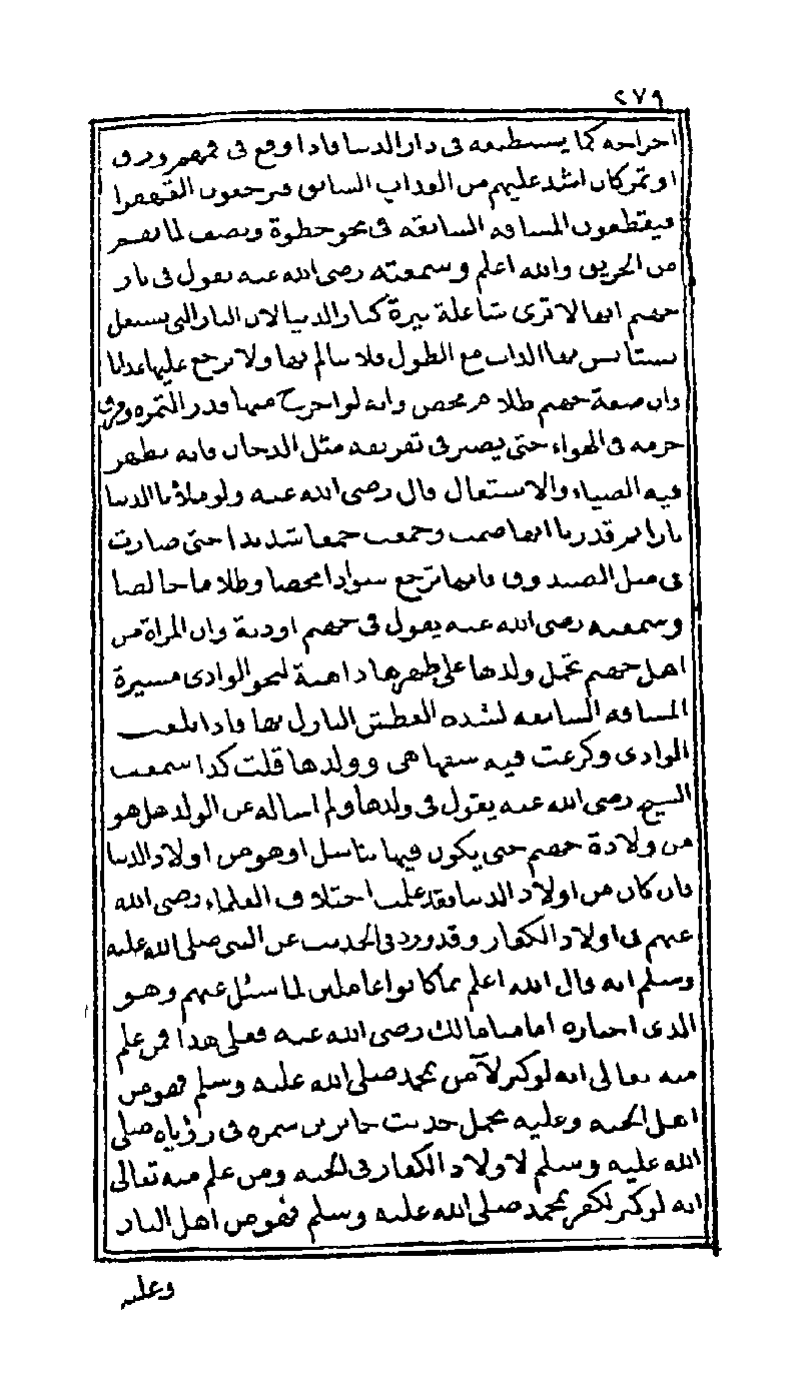 ٢٧٩
اخراجه كما يستطيعه فى دار الدنيا فاذا وقع فى فمهم ورق
او ثمر كان اشد عليهم من العذاب السابق فيرجعون القهقرا
فيقطعون المسافة السابقة فى نحو خطوة ونصف لما بهم
من الحريق والله اعلم وسمعته رضى الله عنه يقول فى نار
جهنم انها لا ترى شاعلة نيرة كنار الدنيا لان النار التى تشتعل
يستانس بها الذات مع الطول فلا تتالم بها ولا ترجع عليها عذابا
وان صفة جهنم ظلام محض وانه لو اخرج منها قدر التمرة وفرق
جرمه فى الهواء حتى يصير فى تفريقه مثل الدخان فانه يظهر
فيه الضياء والاشتعال قال رضى الله عنه ولو ملأنا الدنيا
نارا ثم قدرنا انها ضمت وجمعت جمعا شديدا حتى صارت
فى مثل الصندوق فانها ترجع سوادا محضا وظلاما خالصا
وسمعته رضى الله عنه يقول فى جهنم اودية وان المراة من
اهل جهنم تحمل ولدها على ظهرها ذاهبة لنحو الوادى مسيرة
المسافة السابقة لشدة العطش النازل بها فاذا بلغت
الوادى وكرعت فيه سقها هى وولدها قلت كذا سمعت
الشيخ رضى الله عنه يقول فى ولدها ولم اساله عن الولد هل هو
من ولادة جهنم حتى يكون فيها تناسل او هو من اولاد الدنيا
فان كان من اولاد الدنيا فقد علمت اختلاف العلماء رضى الله
عنهم فى اولاد الكفار وقد ورد فى الحديث عن النبى صلى الله عليه
وسلم انه قال الله اعلم بما كانوا عاملين لما سئل عنهم وهو
الذى اختاره امامنا مالك رضى الله عنه فعلى هذا فمن علم
منه تعالى انه لو كبر لآمن بمحمد صلى الله عليه وسلم فهو من
اهل الجنة وعليه يحمل حديث جابر بن سمرة فى رؤياه صلى
الله عليه وسلم لاولاد الكفار فى الجنة ومن علم منه تعالى
انه لو كبر لكفر بمحمد صلى الله عليه وسلم فهو من اهل النار
وعليه